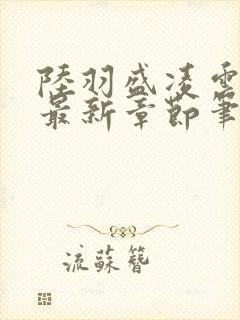 陸羽盛凌雲
最新章節筆
流蘇簪